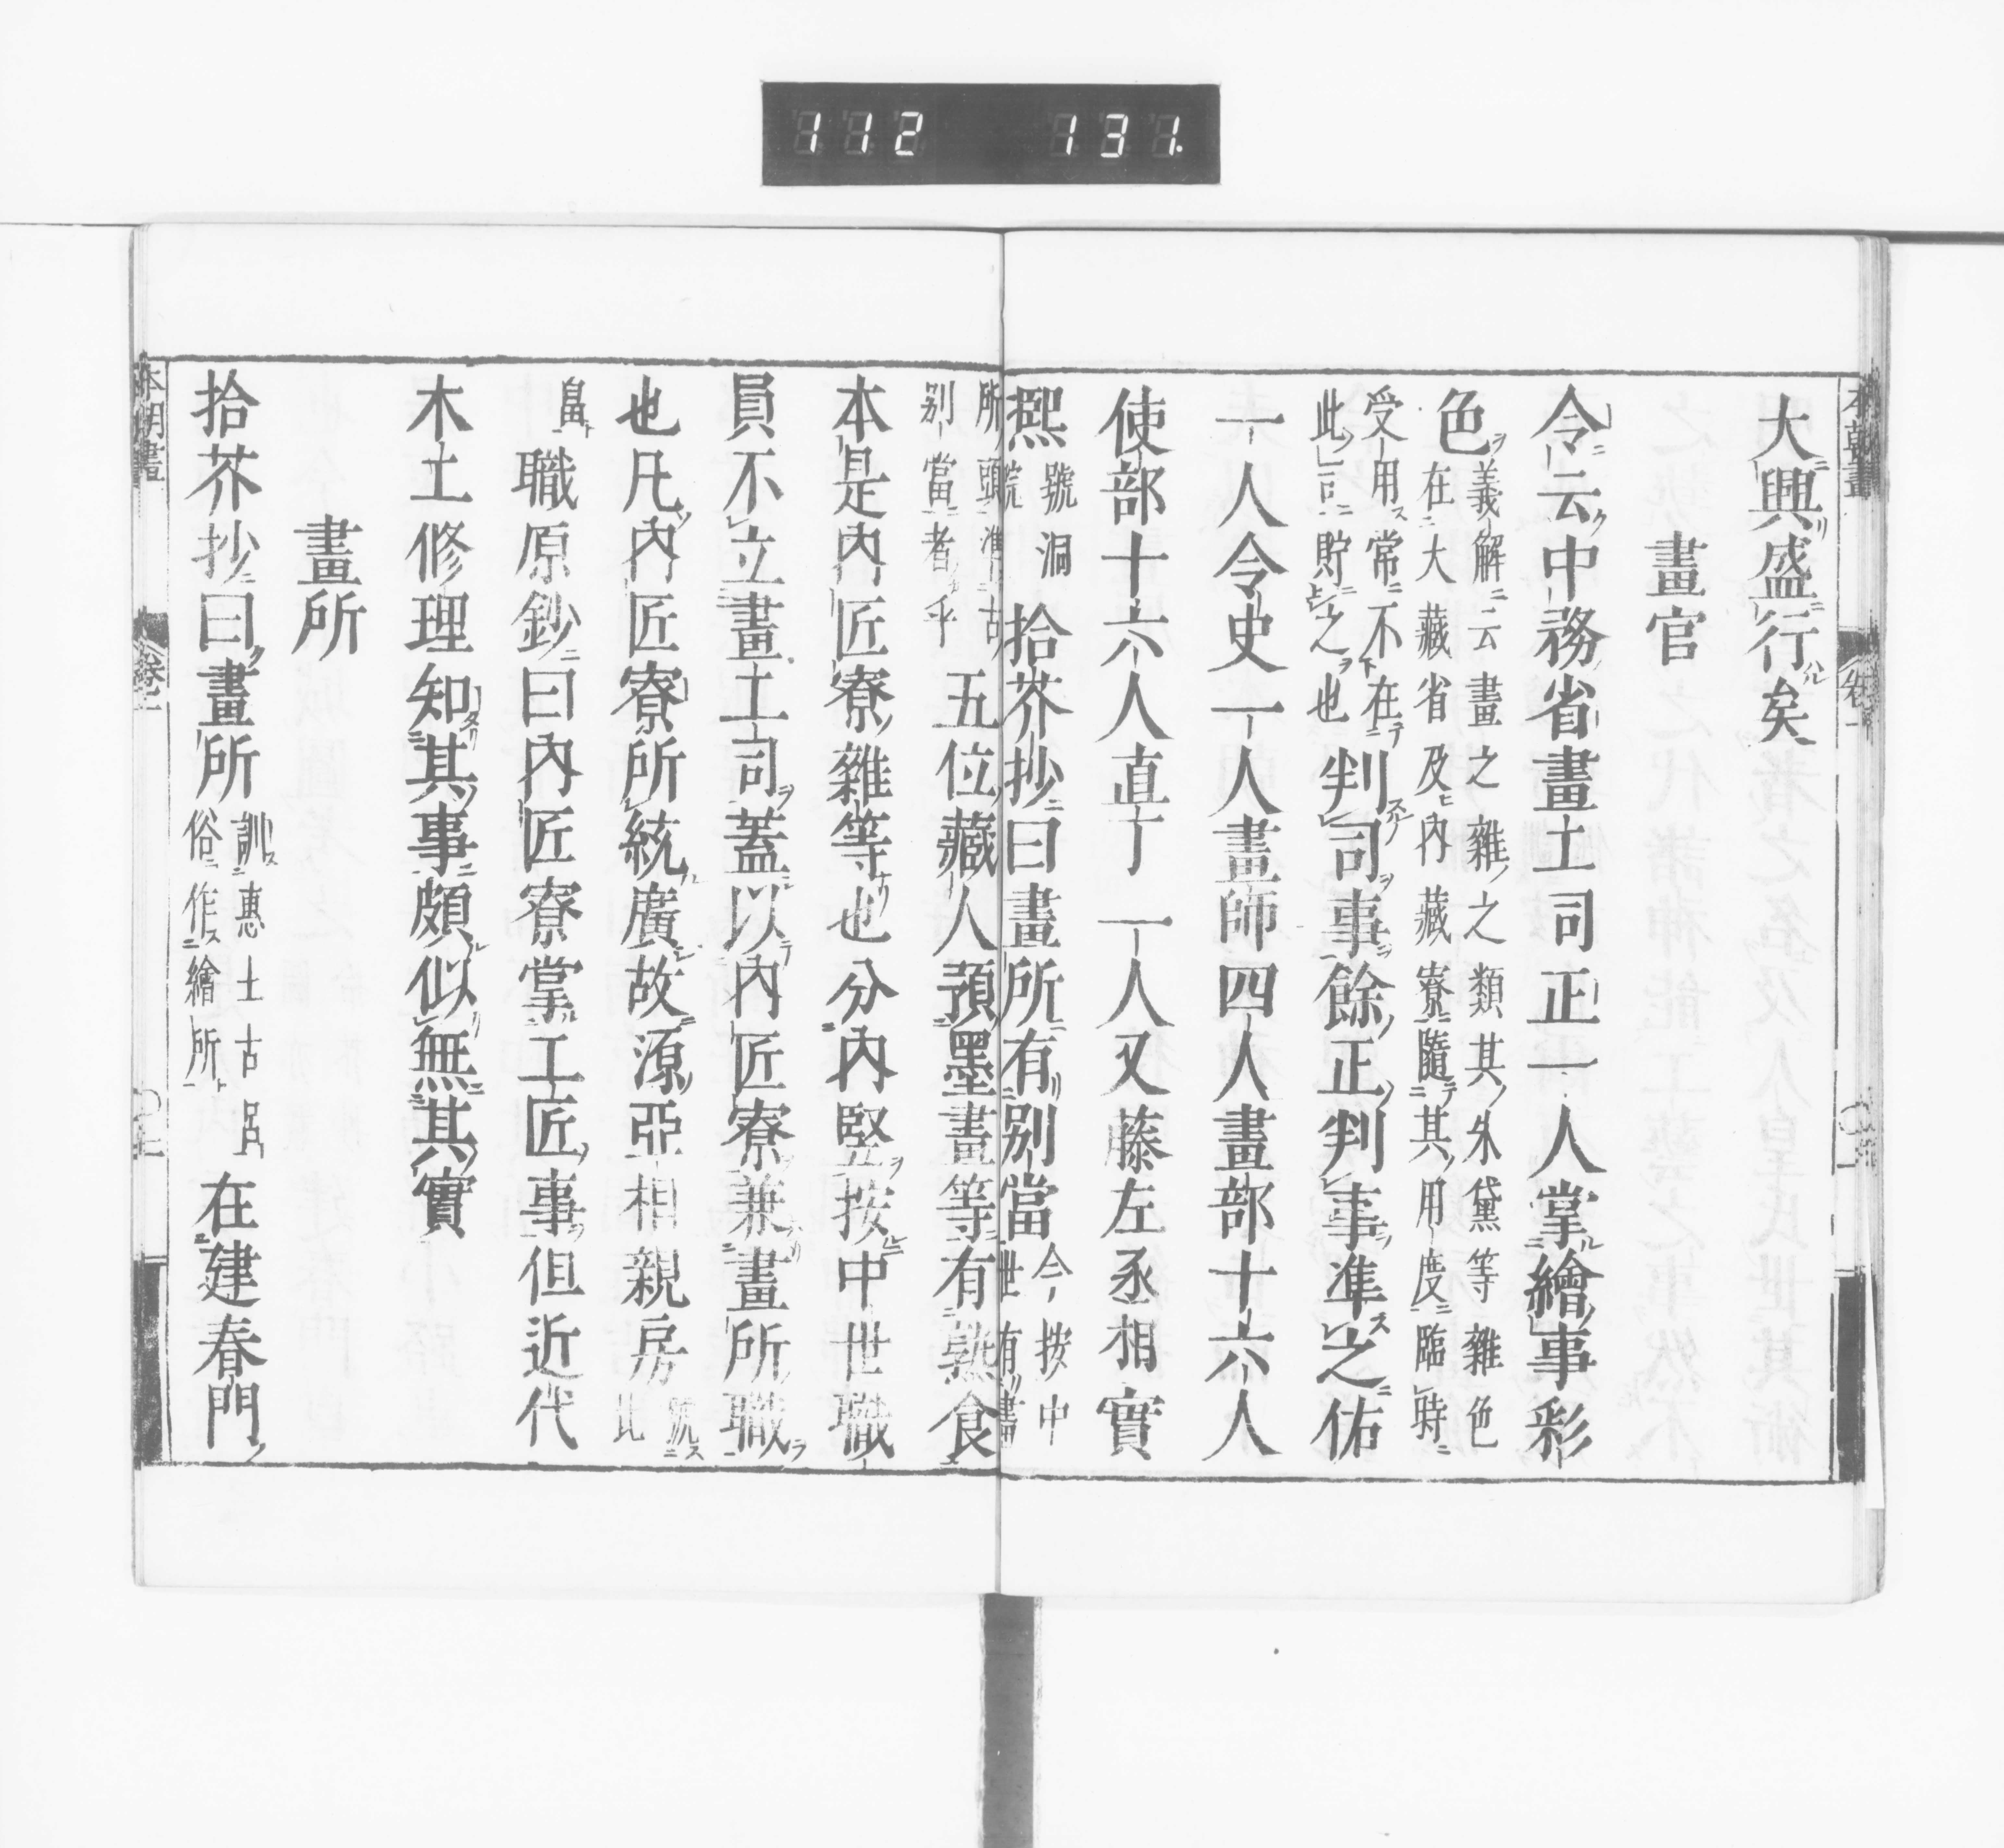 112 131.
大興盛行矣
畫官
令云中務省畫工司正一人掌繪事彩
色義解云畫之雜之類其朱黛等雜色
在大藏省及內藏寮隨其用度臨時
受用常不在
此司貯之也判司事餘正判事准之佑
一人令史一人畫師四人畫部十六人
使部十六人直丁一人又藤左丞相實
熙號洞院拾芥抄曰畫所有別當今按中
世有畫
所頭准古
別當者乎五位藏人預墨畫等有熟食
本是內匠寮雜等也分內竪按中世職
員不立畫工司蓋以內匠寮兼畫所職
也凡內匠寮所統廣故源亞相親房號
北
畠職原鈔曰內匠寮掌工匠事但近代
木工修理知其事頗似無其實
畫所
拾芥抄曰畫所訓惠土古呂
俗作繪所在建春門